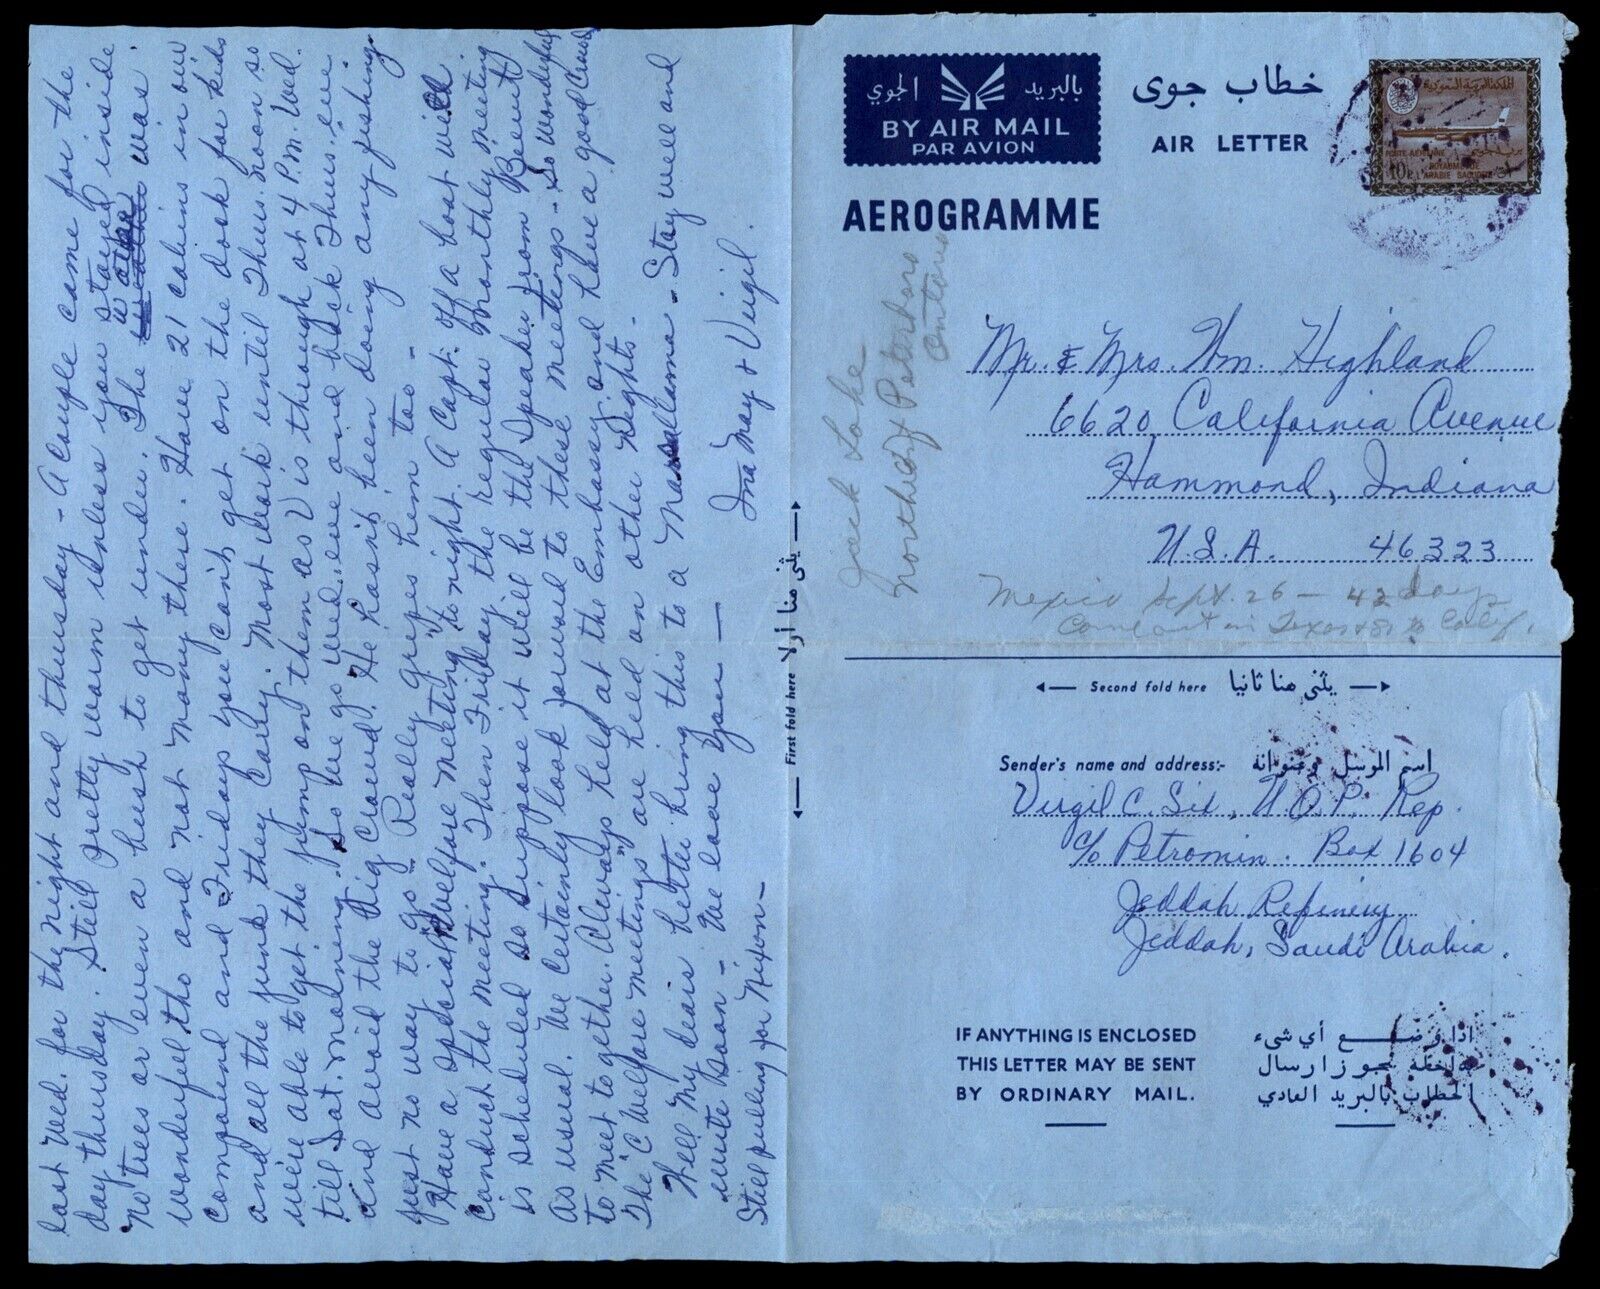 last Wed. for the night and thursday - A couple came for the
day thursday. Still pretty warm unless you stayed inside.
No trees or even a bush to get under. The water was
wonderful tho and not many there. Have 21 cabins in our
compound and Fridays you can't get on the dock for kids
and all the junk they carry. Most work until Thurs. noon so
we're able to get the jump on them as V is through at 4 P.M. Wed.
till Sat. morning. So we go Wed. eve and back Thurs. eve.
and avoid the big crowd. He hasn't been doing any fishing.
just no way to go - Really gripes him too -
Have a special "Welfare meeting" to night. A Capt. of a boat will
Conduct the meeting. Then Friday the regular Monthly meeting
is scheduled so suppose it will be the speaker from Beirut
As usual. We certainly look forward to these meetings - So wonderful
to meet together. Always held at the Embassy and have a good crowd
The "C Welfare meetings" are held on other nights.
Well My dears better bring this to a Maaslama - Stay well and
write soon - We love you —
Still pulling for Nixon - Ina May & Virgil.
البريد الجوي
BY AIR MAIL
PAR AVION
خطاب جوى
AIR LETTER
AEROGRAMME
المملكة العربية السعودية
POSTE AERIENNE
ROYAUME DE
L'ARABIE SAOUDITE
10 P.
Jack Lake
North of Peterboro
Ontario
Mr. & Mrs. Wm. Highland
6620 California Avenue
Hammond, Indiana
U.S.A. 46323
Mexico Sept. 26 - 42 days
Come out in Texas & to Calif.
First fold here يثنى هنا أولا
Second fold here يثنى هنا ثانيا
Sender's name and address:- اسم المرسل وعنوانه
Virgil C. Six, U.O.P. Rep.
c/o Petromin. Box 1604
Jeddah Refinery
Jeddah, Saudi Arabia.
IF ANYTHING IS ENCLOSED
THIS LETTER MAY BE SENT
BY ORDINARY MAIL.
اذا وضع أي شىء
بداخله يجوز ارسال
الخطاب بالبريد العادي